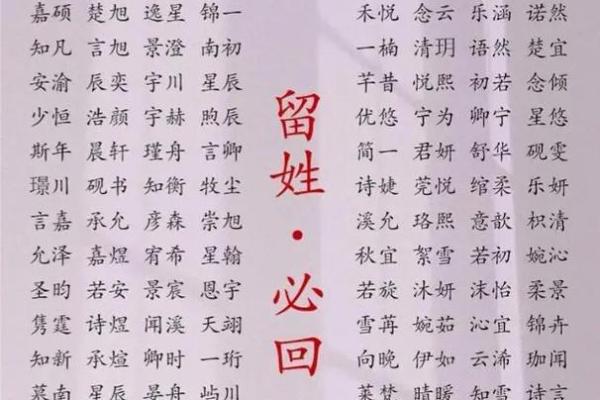 嘉硕 楚旭 逸星 锦一
知凡 言旭 景澄 南初
安渝 辰奕 宇川 星辰
少恒 浩颜 宇赫 煦辰
斯年 晨轩 瑾舟 言卿
璟川 砚书 知衡 牧尘
言嘉 承允 彦森 崇旭
允泽 嘉煜 宥希 星翰
圣昀 若安 景宸 恩宇
隽霆 诗煜 闻溪 天翊
知新 承煊 卿时 一珩
慕南 星辰 晏舟 屿川
留姓·必回
禾悦 念云 乐涵 诺然
一楠 清玥 语然 楚宜
芊昔 悦熙 初若 念倾
优悠 宁为 卿宁 星悠
简一 君妍 舒华 砚雯
诗婕 莞悦 绾柔 乐妍
溪允 珞熙 意歆 枳清
秋宜 絮雪 若初 婉沁
若旋 沐妍 沫怡 柔景
雪苒 婉茹 沁宜 锦卉
向晚 伊如 云浠 珈闻
莱梵 晴暖 知雪 诗言